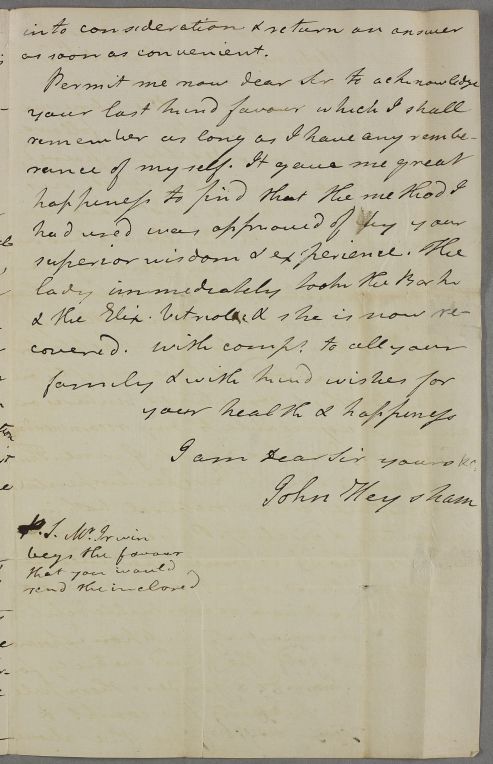 into consideration & return an answer
as soon as convenient.
Permit me now dear Sir to acknowledge
your last kind favour which I shall
remember as long as I have any rembe-
rance of myself. It gave me great
happiness to find that the method I
had used was approved of by your
superior wisdom & experience. The
lady immediately took the Bark
& the Elix. Vitriol. & she is now re-
covered. With comps. to all your
family & with kind wishes for
your health & happiness
I am dear Sir yours &c.
John Heysham
P.S. Mr. Irwin
begs the favour
that you would
send the inclosed